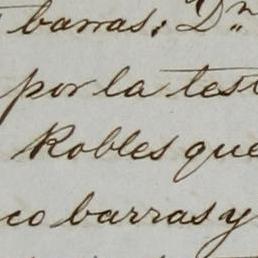 barras: Dn
por la test
Robles que
co barras y